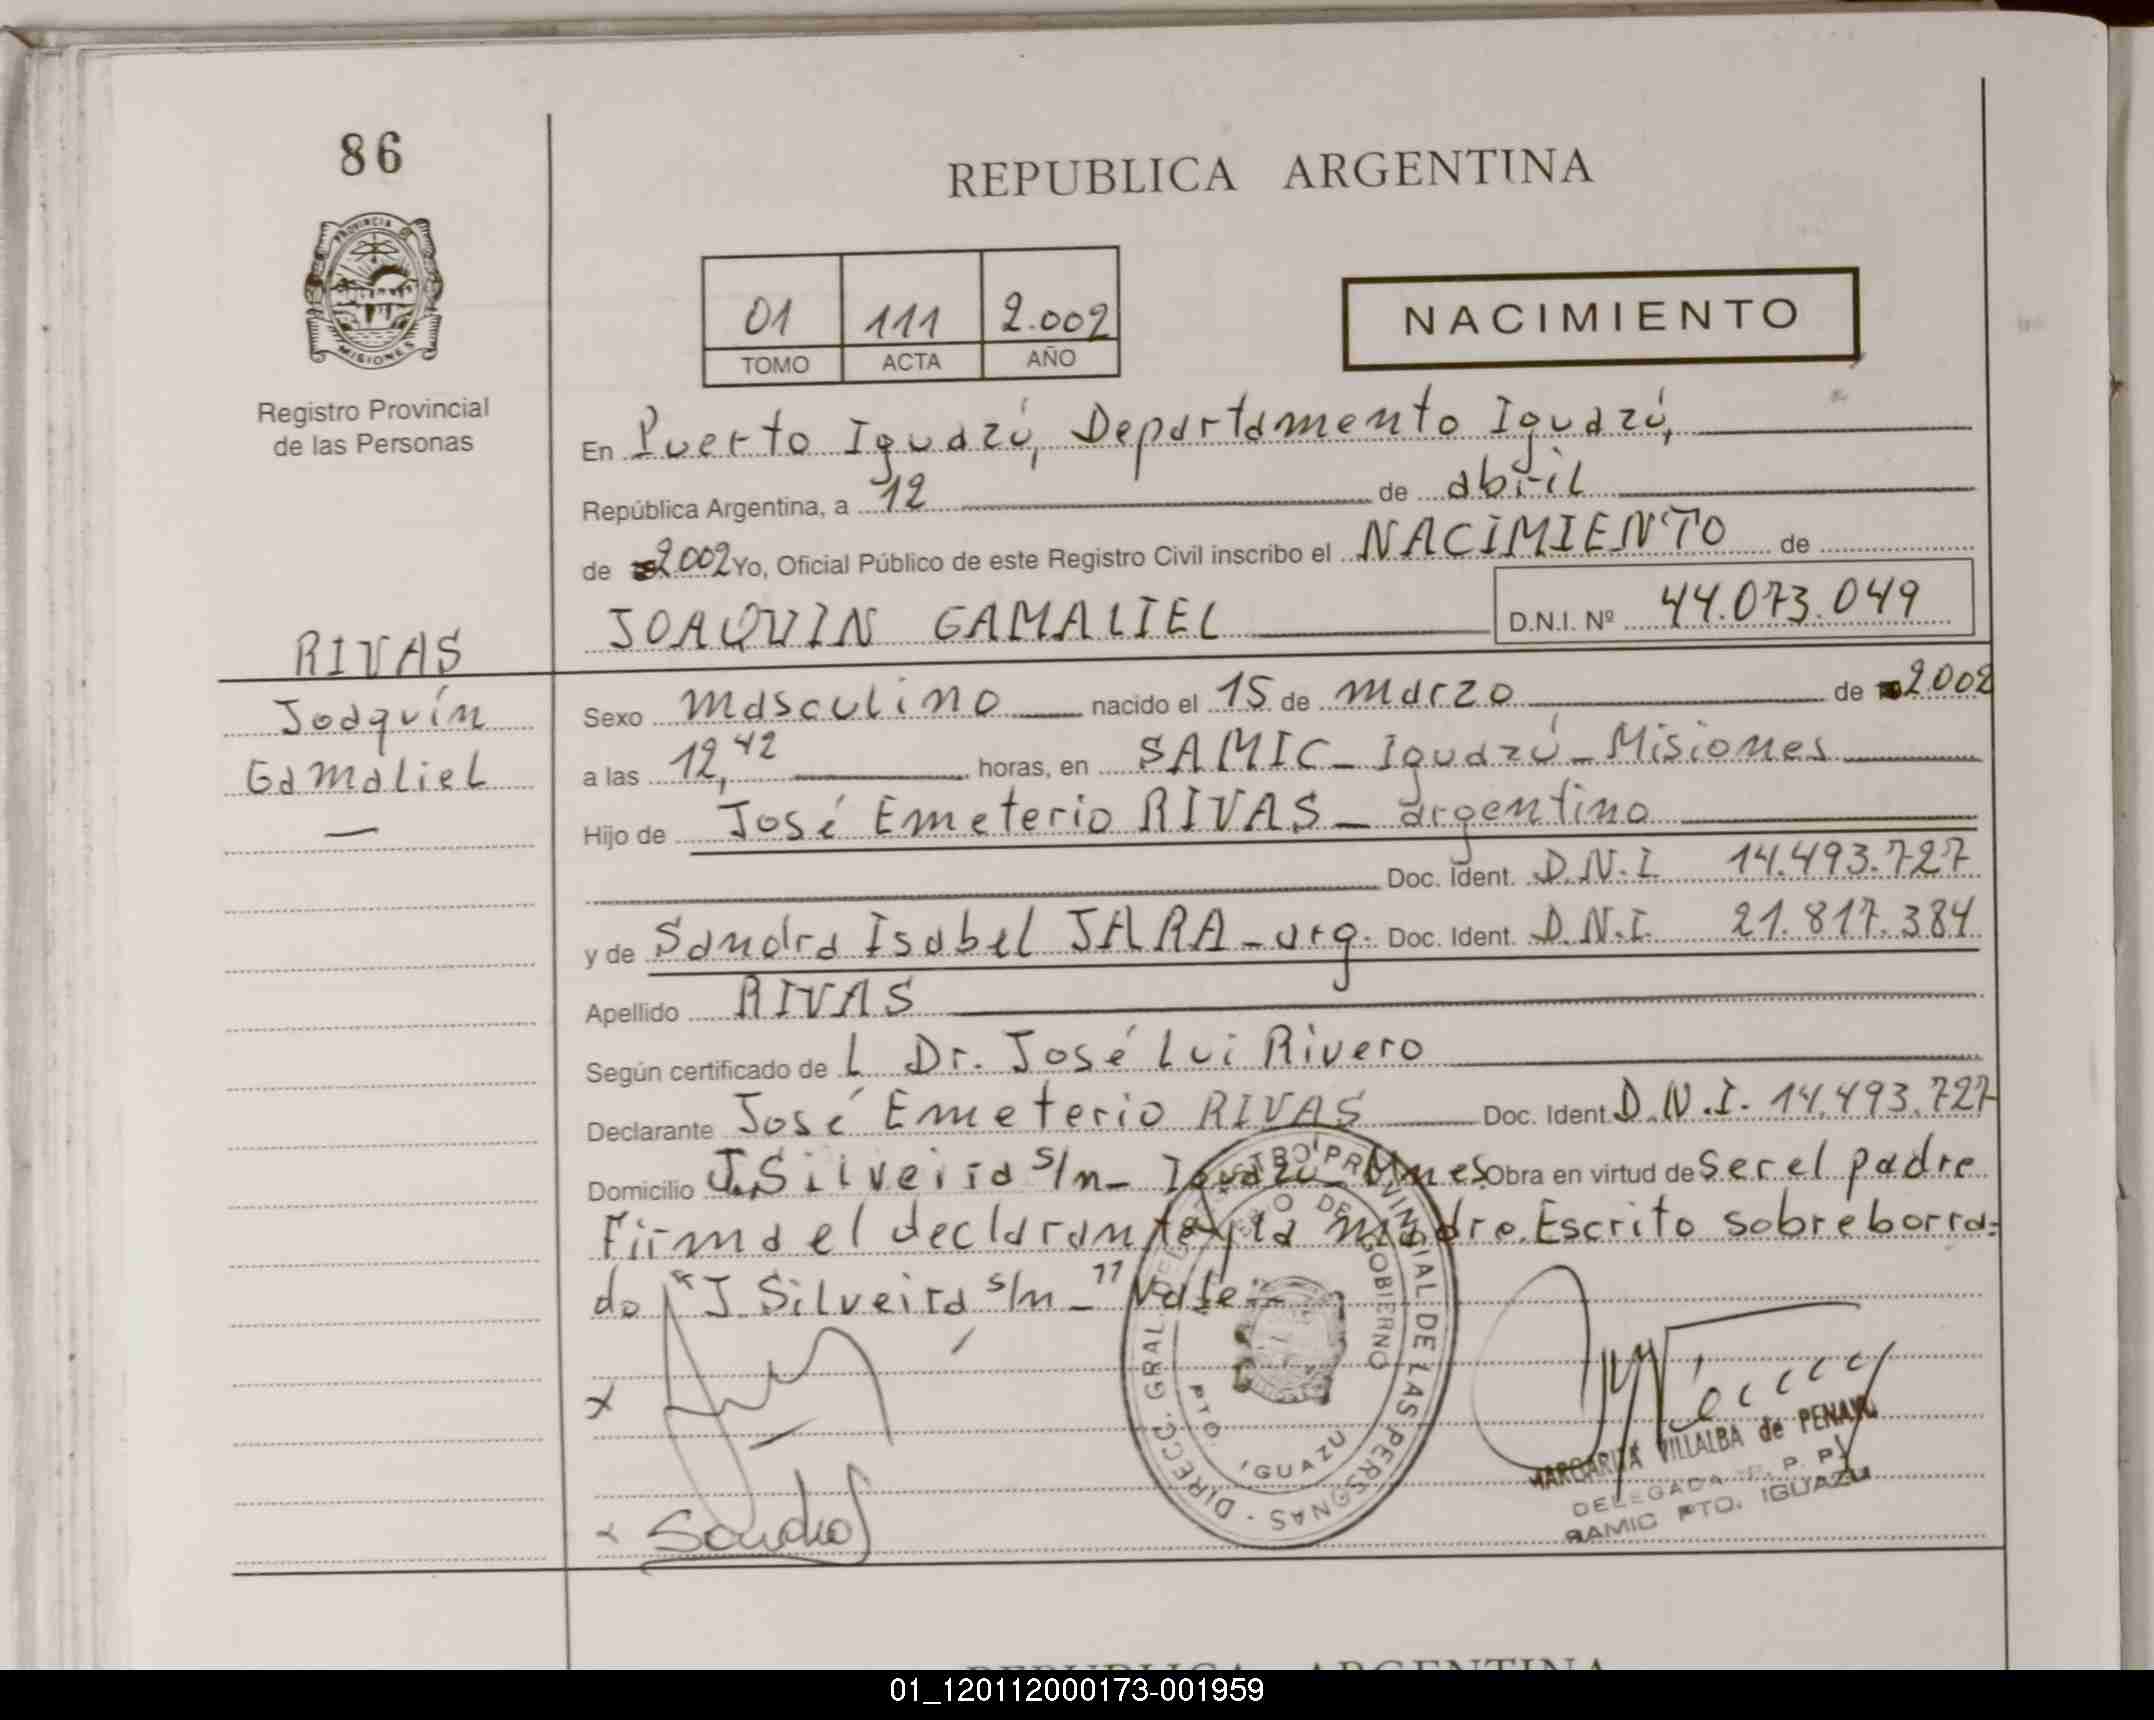 86
PROVINCIA DE
MISIONES
Registro Provincial
de las Personas
REPUBLICA ARGENTINA
01 111 2.002
TOMO ACTA AÑO
NACIMIENTO
En Puerto Iguazú, Departamento Iguazú,
República Argentina, a 12 de abril
de 2002 Yo, Oficial Público de este Registro Civil inscribo el NACIMIENTO de
JOAQUIN GAMALIEL D.N.I. Nº 44.073.049
RIVAS
Joaquín
Gamaliel
Sexo masculino nacido el 15 de marzo de 2002
a las 12,42 horas, en SAMIC - Iguazú - Misiones
Hijo de José Emeterio RIVAS - argentino
Doc. Ident. D.N.I. 14.493.727
y de Sandra Isabel JARA - arg. Doc. Ident. D.N.I. 21.817.384
Apellido RIVAS
Según certificado de L Dr. José Lui Rivero
Declarante José Emeterio RIVAS Doc. Ident. D.N.I. 14.493.727
Domicilio J. Silveira s/n - Iguazú - Mnes Obra en virtud de ser el padre
Firma el declarante y la madre. Escrito sobreborra-
do "J Silveira s/n -" Vale
DIRECC. GRAL. DEL REGISTRO PROVINCIAL DE LAS PERSONAS
DE GOBIERNO
PTO. IGUAZU
x
x Sandra
MARGARITA VILLALBA de PENAYO
DELEGADA R. P. P.
SAMIC PTO. IGUAZU
REPUBLICA ARGENTINA
01_120112000173-001959